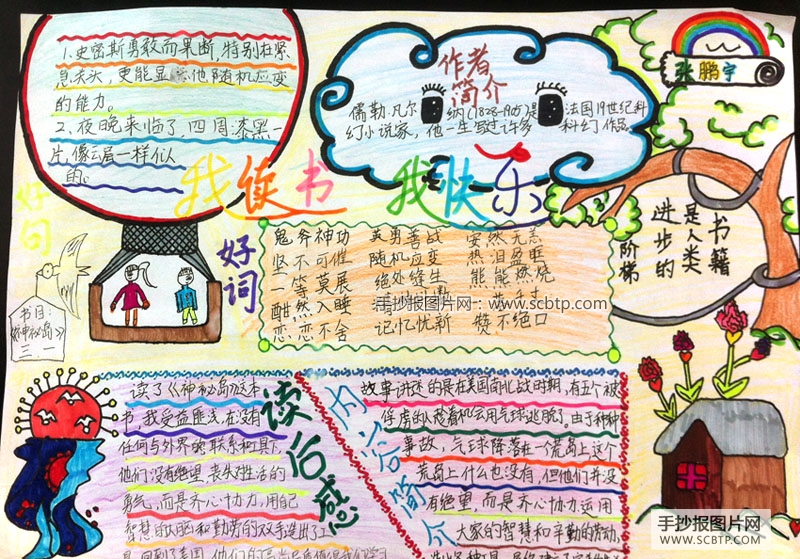 1.史密斯勇敢而果断,特别在紧
急关头,更能显 他随机应变
的能力。
2、夜晚来临了,四周漆黑一
片,像云层一样似
的。
好句
作者
简介
儒勒·凡尔纳(1828-1905)是法国19世纪科
幻小说家,他一生写过许多科幻作品
张鹏宇
我读书 我快乐
书籍
是人类
进步的
阶梯
好词
鬼斧神功 英勇善战 安然无恙
坚不可催 随机应变 热泪盈眶
一筹莫展 绝处缝生 熊熊燃烧
手抄报图片网:www.scbtp.com
酣然入睡
恋恋不舍 记忆忧新 赞不绝口
书目:
《神秘岛》
三一
读后感
读了《神秘岛》这本
书,我受益匪浅,在没有
任何与外界的联系和工具下,
他们没有绝望,丧失对生活的
勇气,而是齐心协力,用自己
智慧的大脑和勤劳的双手造出了工
内容简介
故事讲述的是在美国南北战时期,有五个被
俘虏的人趁着机会用气球逃脱了。由于种种
事故,气球降落在一个荒岛上,这个
荒岛上什么也没有,但他们并没
有绝望,而是齐心协力运用
大家的智慧和辛勤的劳动,
手抄报图片网
WWW.SCBTP.COM